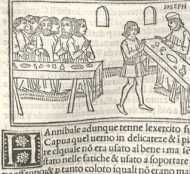 IOSEPH
HAnnibale adunque tenne lexercito i
Capua quel uerno in delicateze & i pi
re el quale nō era usato al bene : ma
stato nelle fatiche & usato a soportare
& p tanto coloro iquali nō erano